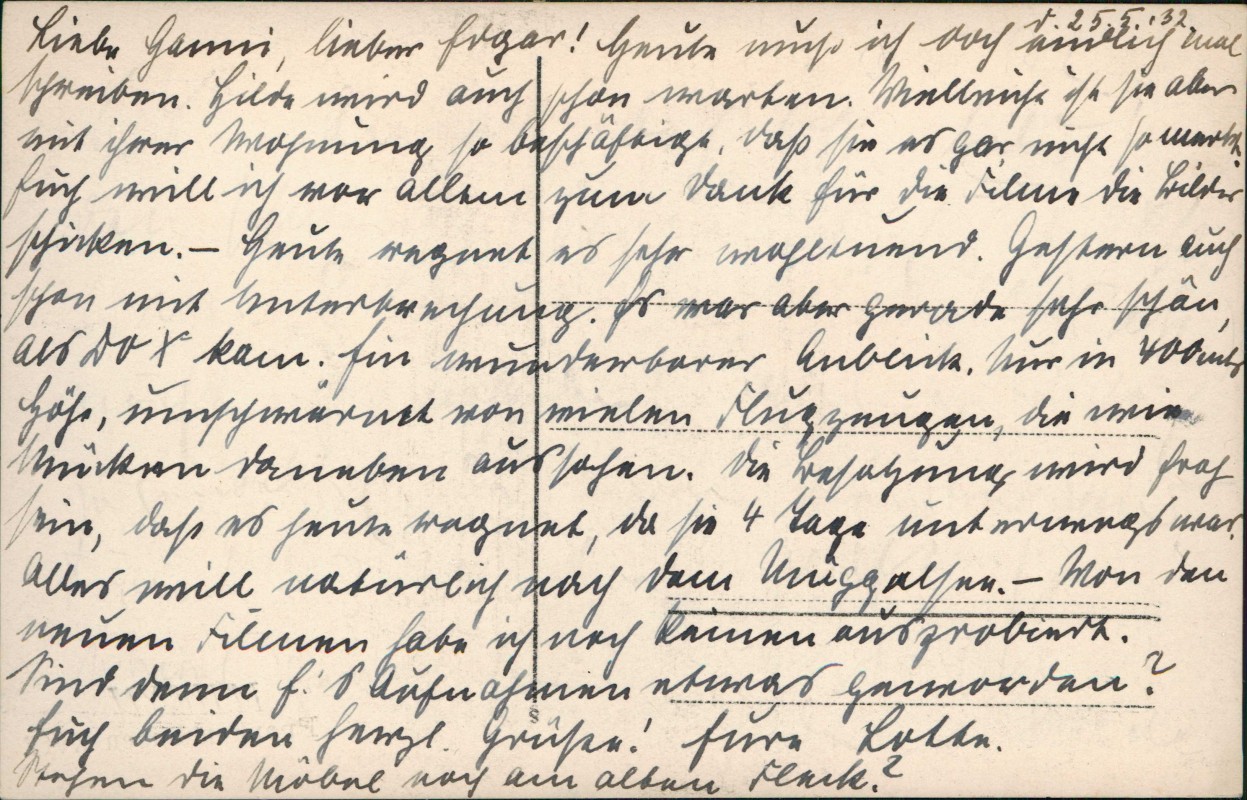 d. 25.5.32.
Liebe Hanni, lieber Edgar! Heute muß ich doch endlich mal
schreiben. Hilde wird auch schon warten. Vielleicht ist sie aber
mit ihrer Wohnung so beschäftigt, daß sie es gar nicht so merkt.
Euch will ich vor allem zum Dank für die Filme die Bilder
schicken. – Heute regnet es sehr wohltuend. Gestern auch
schon mit Unterbrechung. Es war aber gerade sehr schön,
als DO X kam. Ein wunderbarer Anblick. Nur in 400 mtr
Höhe, umschwärmt von vielen Flugzeugen, die wie
Mücken daneben aussahen. Die Besatzung wird froh
sein, daß es heute regnet, da sie 4 Tage unterwegs war.
Alles will natürlich nach dem Müggelsee. – Von den
neuen Filmen habe ich noch keinen ausprobiert.
Sind denn E.'s Aufnahmen etwas geworden?
Euch beiden herzl. Grüße! Eure Lotte.
Stehen die Möbel noch am alten Fleck?